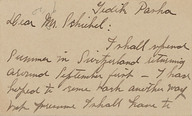 Tedith Pasha
Dear Mr. Schihel:
I shall spend
Summer in Switzerland returning
around September first - I had
hoped to come back another way
but presume I shall have to